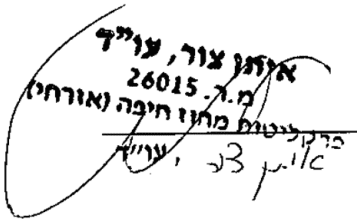 איתן צור, עו"ד
מ.ר. 26015
פרקליטות מחוז חיפה (אזרחי)
איתן צור, עו"ד